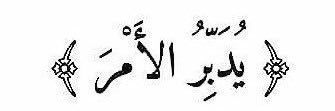 ﴿ يُدَبِّرُ الأَمْرَ ﴾